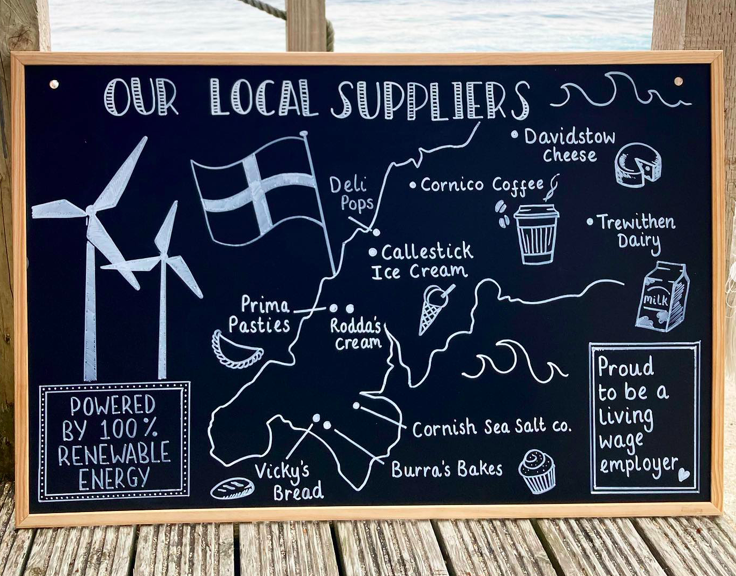 OUR LOCAL SUPPLIERS
Davidstow
Cheese
Deli
Pops
Cornico Coffee
Trewithen
Dairy
Callestick
Ice Cream
milk
Prima
Pasties
Rodda's
Cream
Proud
to be a
living
wage
employer
POWERED
BY 100%
RENEWABLE
ENERGY
Cornish Sea Salt co.
Burra's Bakes
Vicky's
Bread